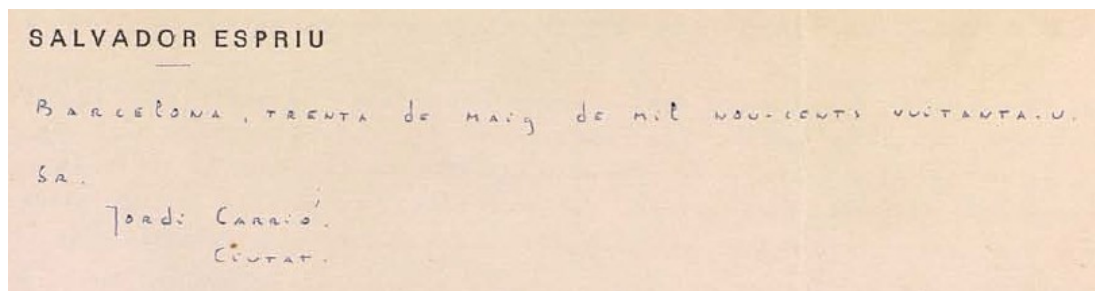 SALVADOR ESPRIU
Barcelona, trenta de maig de mil nou-cents vuitanta-u.
Sr.
Jordi Carrió.
Ciutat.